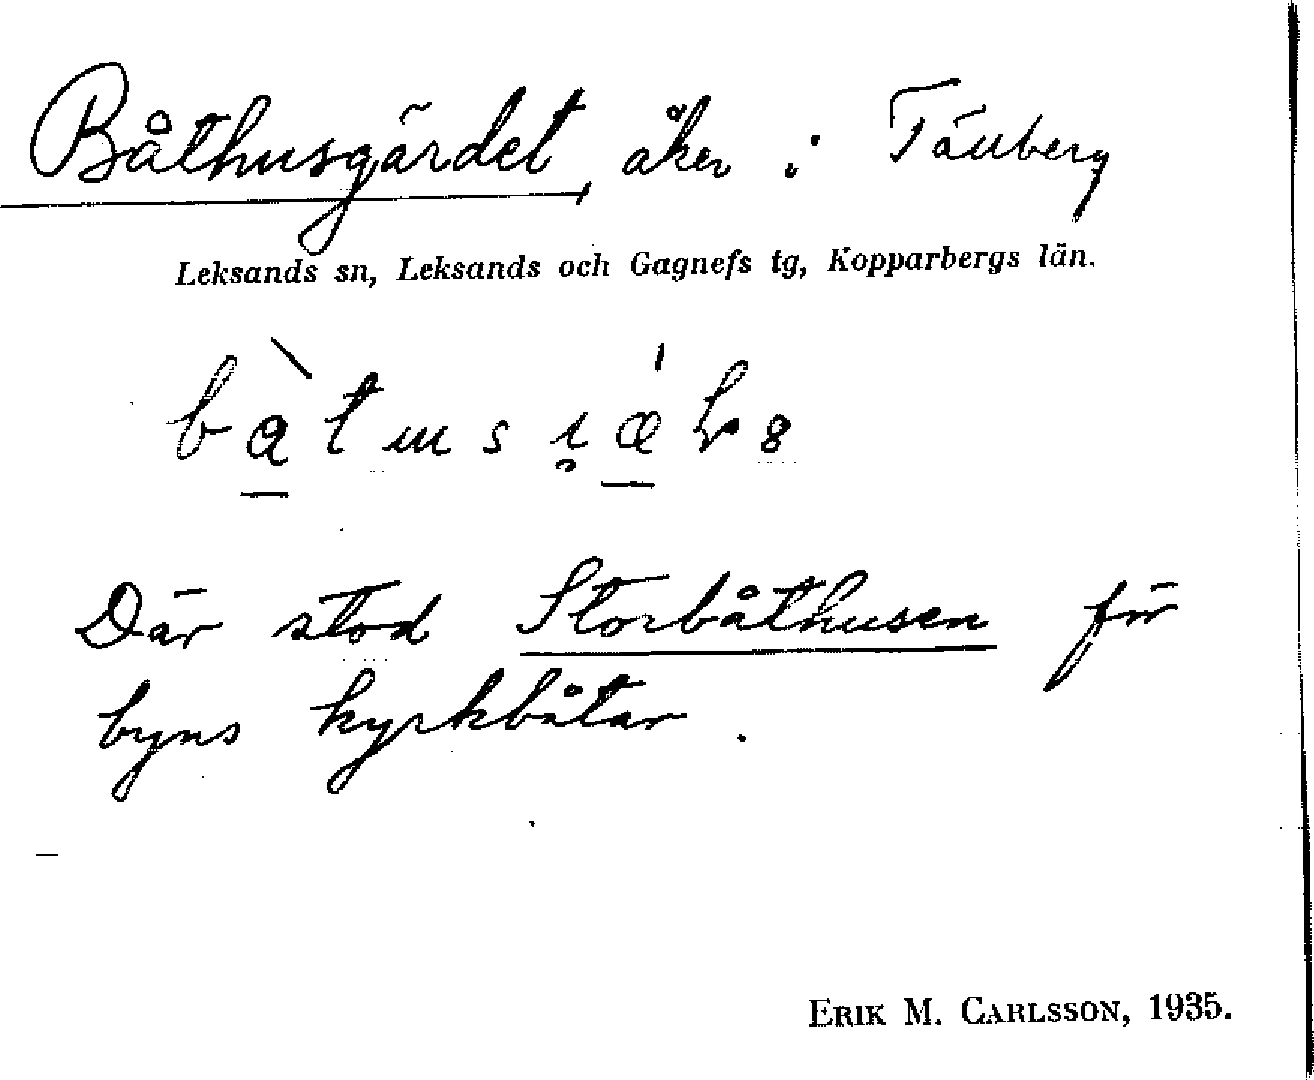 Båthusgärdet, åker i Tällberg
Leksands sn, Leksands och Gagnefs tg, Kopparbergs län.
Där stod Storbåthusen för
byns kyrkbåtar.
ERIK M. CARLSSON, 1935.